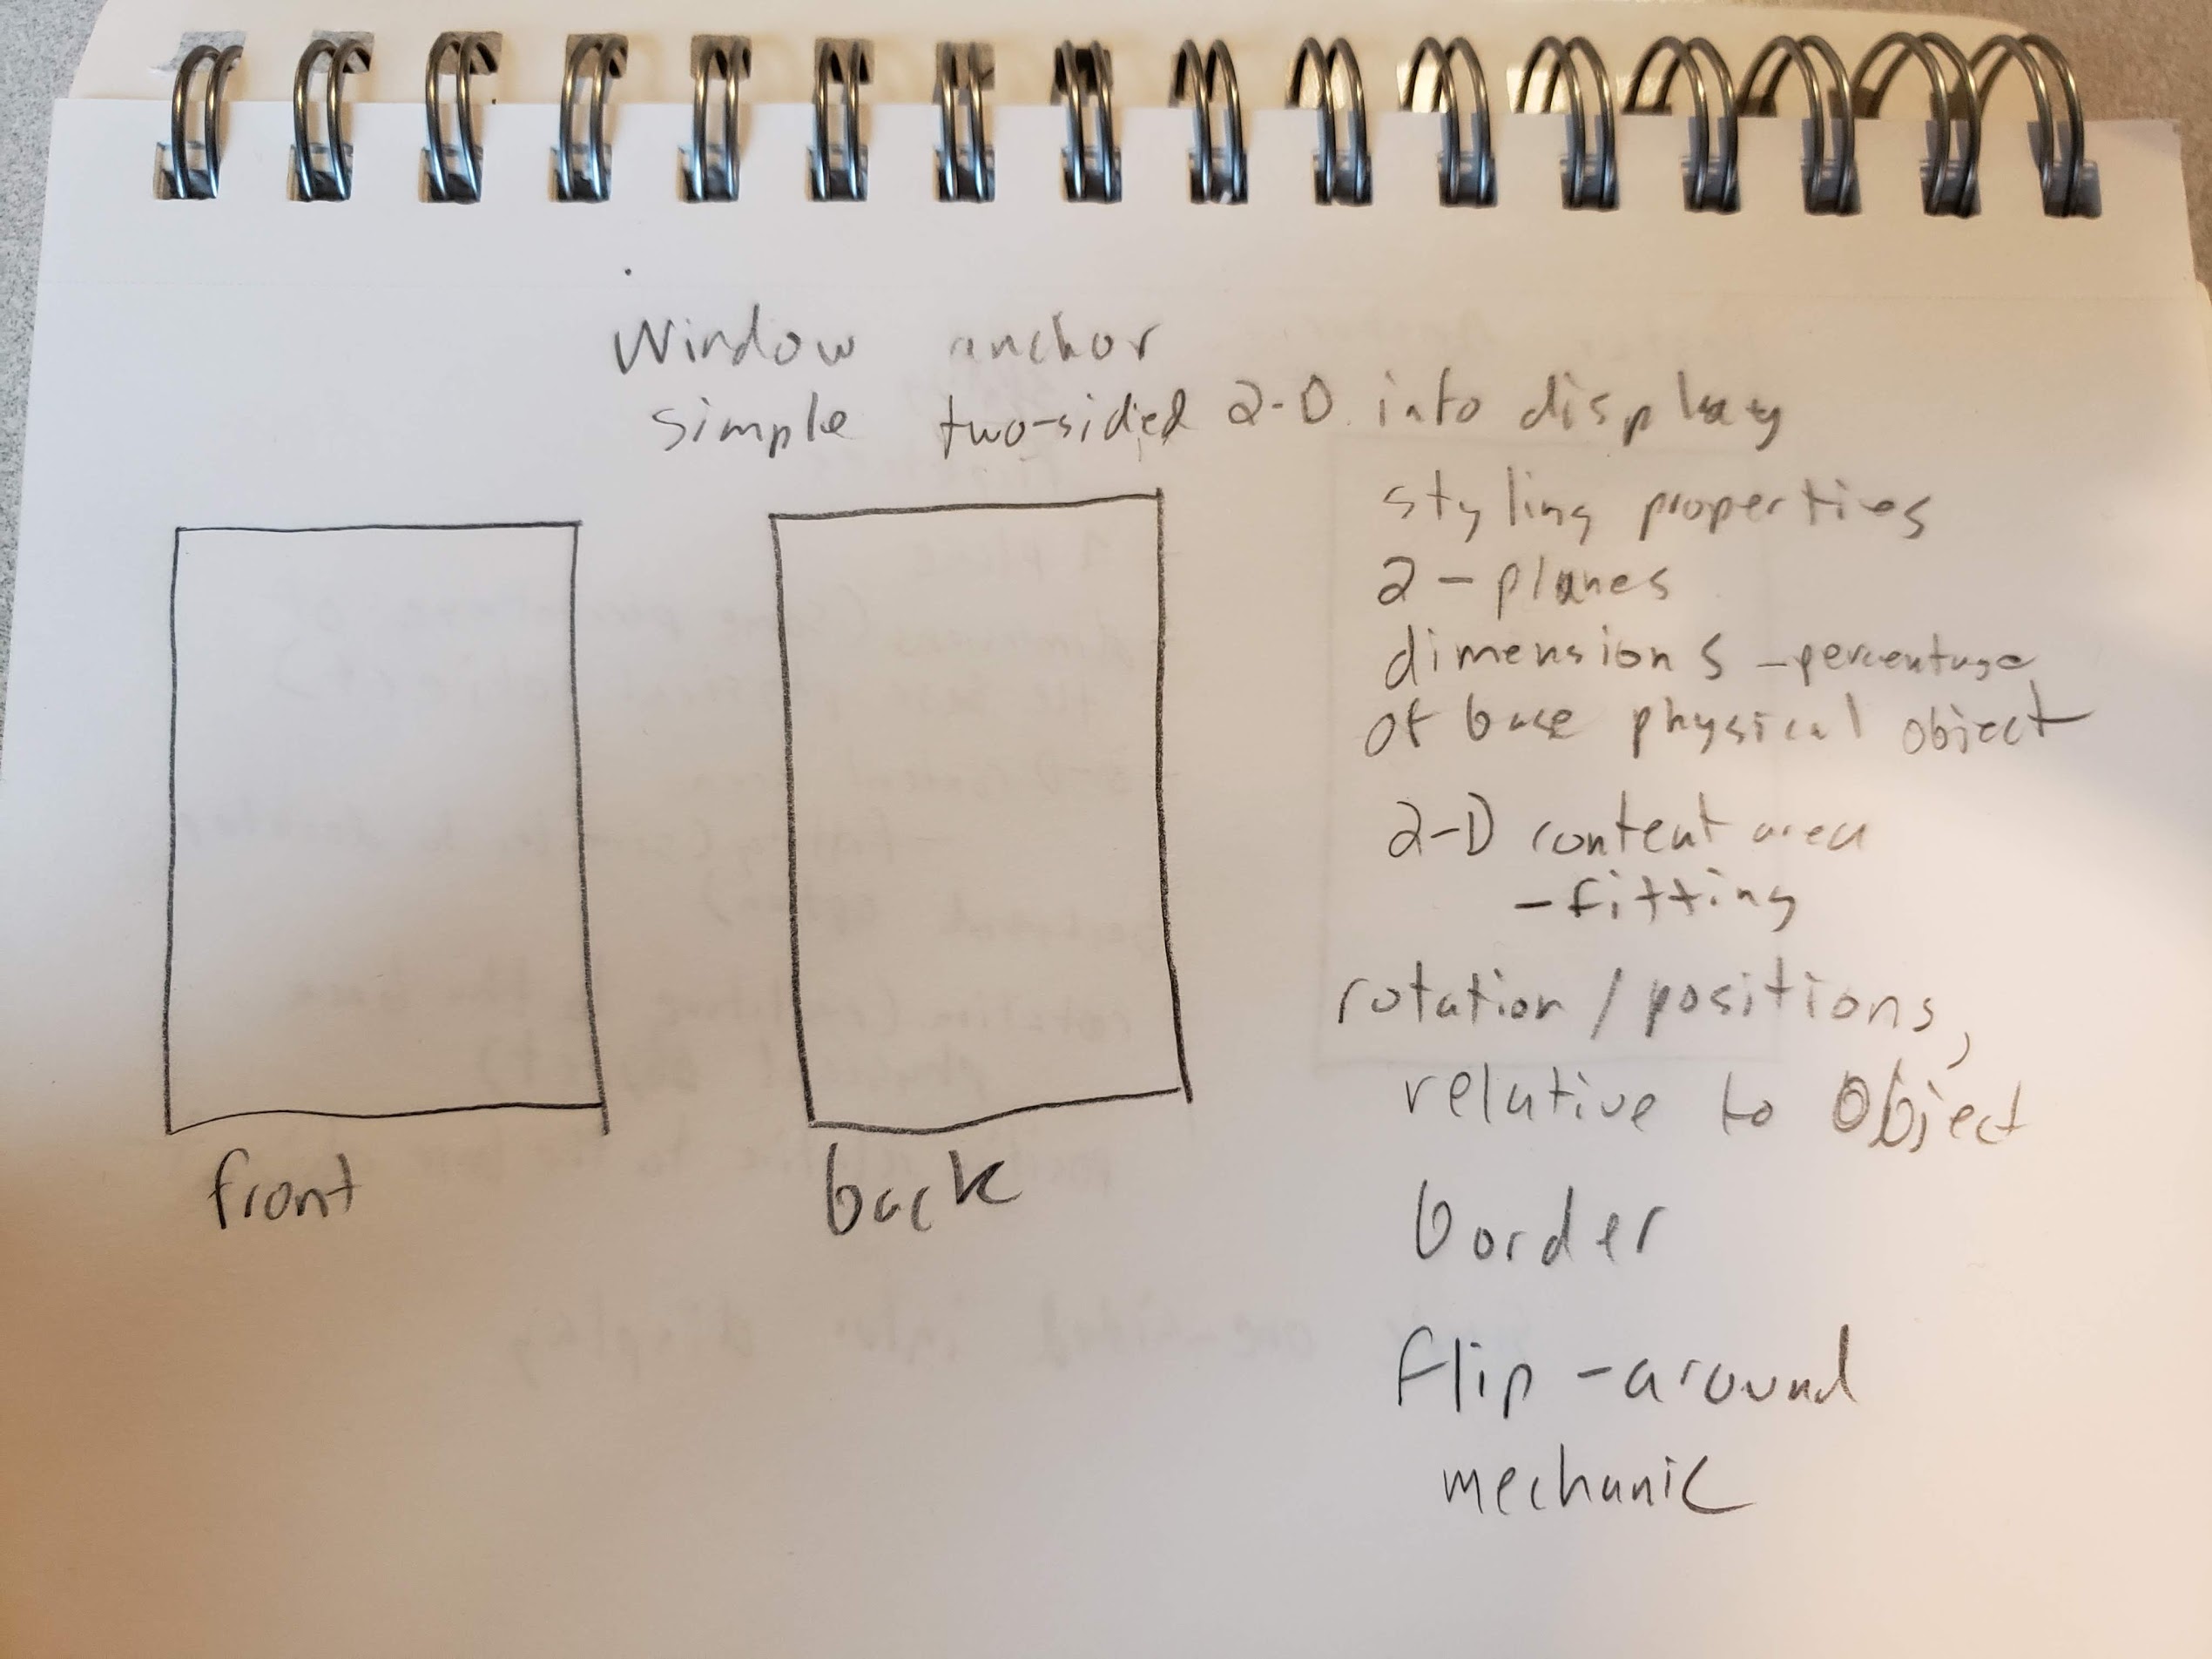 Window anchor
simple two-sided 2-D into display
styling properties
2 - planes
dimensions - percentage
of base physical object
2-D content area
- fitting
rotation / positions,
relative to Object
border
flip - around
mechanic
front
back